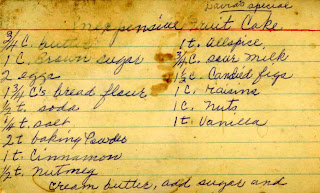 David's special
Inexpensive Fruit Cake
3/4 C. butter
1 C. Brown sugar
2 eggs
1 3/4 C's bread flour
1/2 t. soda
1/4 t. salt
2 t baking Powder
1 t. Cinnamon
1/2 t. Nutmeg
1 t. allspice,
3/4 C. sour milk
1 1/2 C. Candied figs
1 C. raisins
1 C. Nuts
1 t. Vanilla
Cream butter, add sugar and